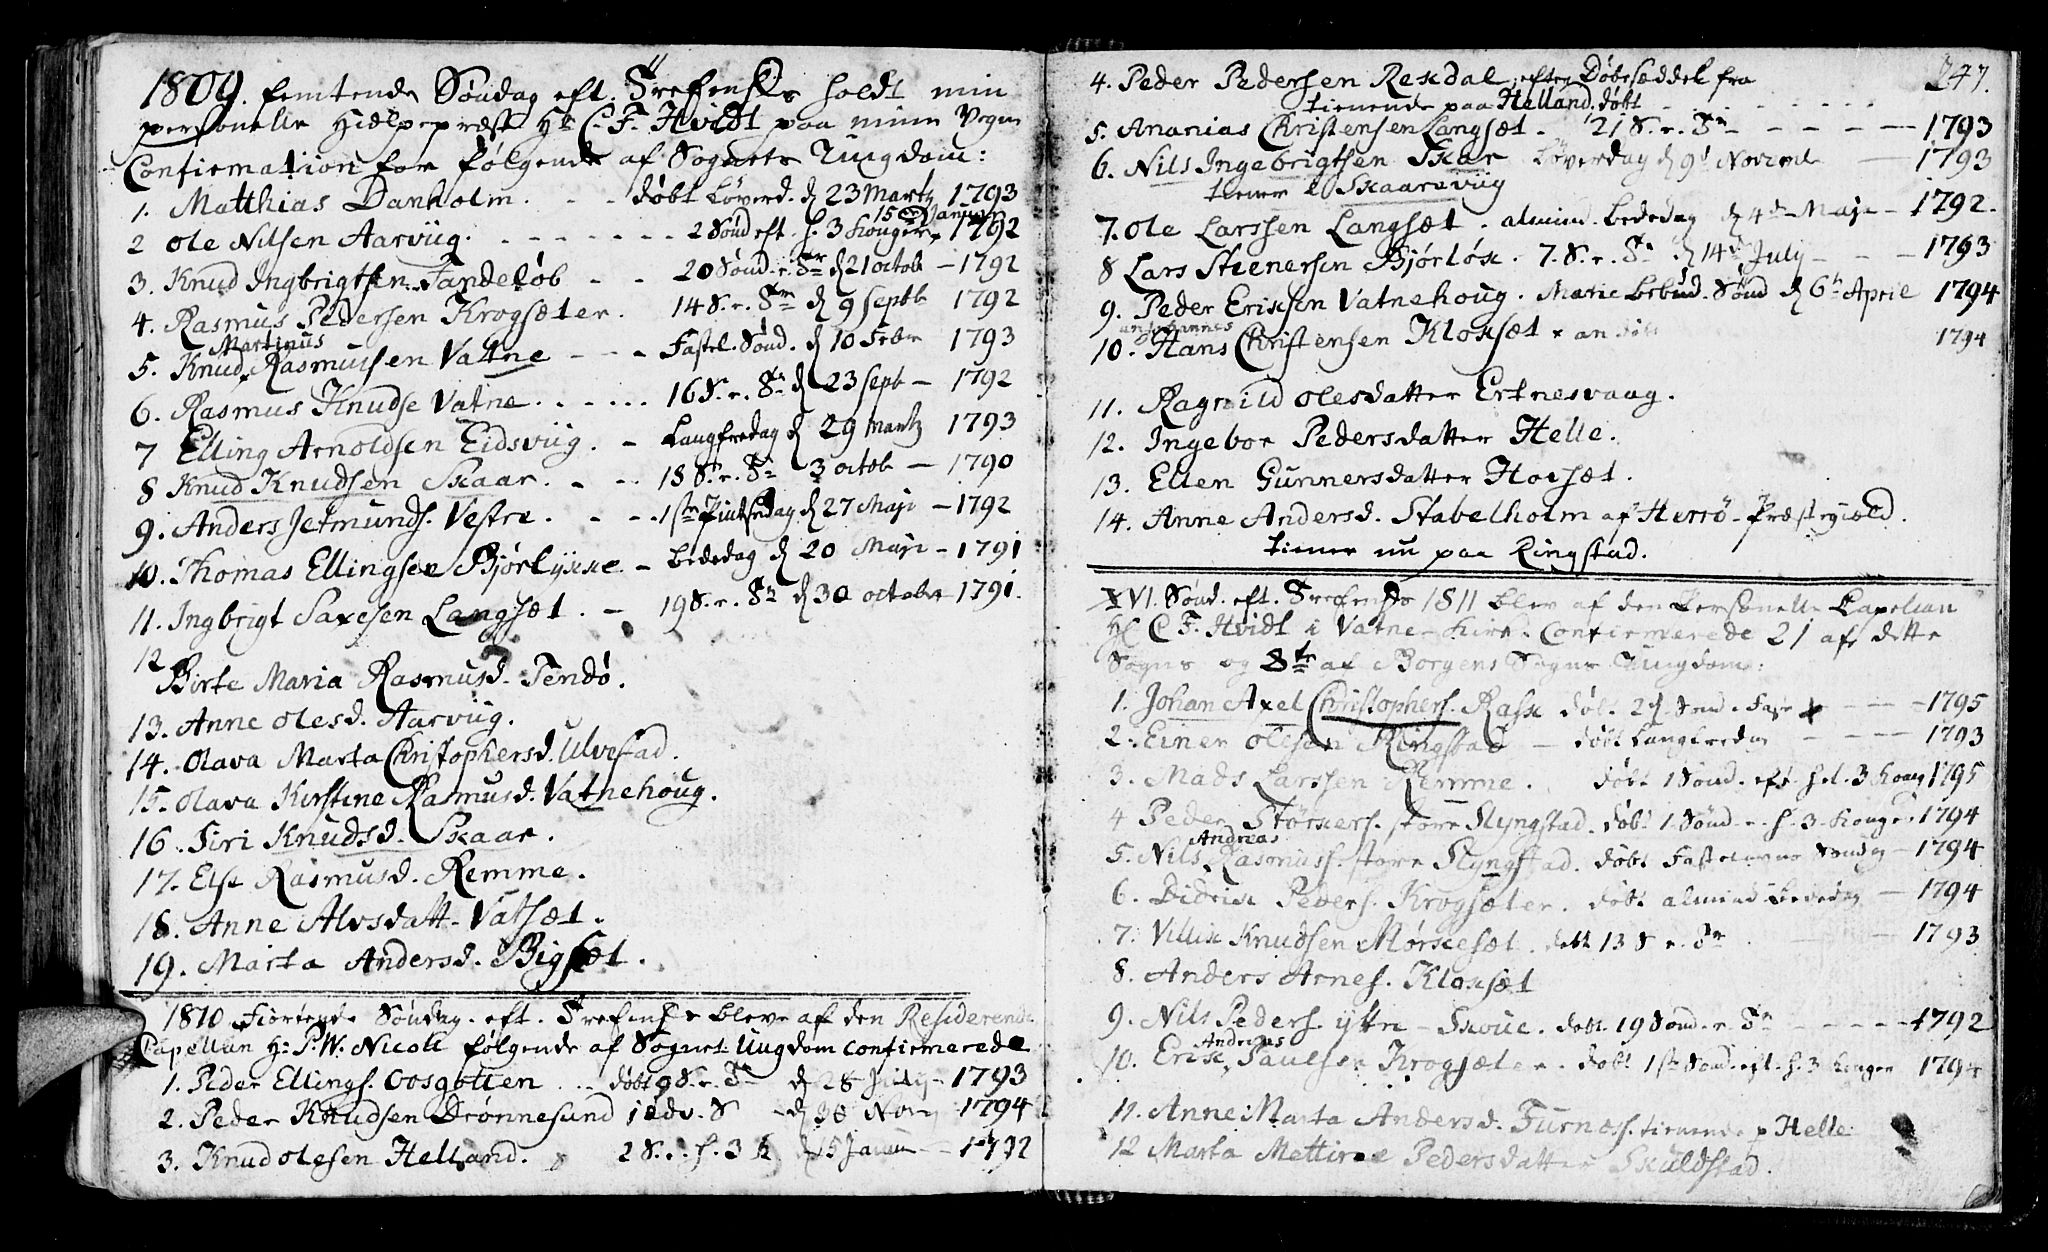 1809. femtende Søndag eft. Trefoensk holdt min
personelle Hielpepræst Hr C. F. Hvidt paa mine Vegne
Confirmation for følgende af Sognets Ungdom:
1. Matthias Danholm. - - døbt Løverd. d 23 Martz 1793
15 Januar
2 Ole Nilsen Aarviig. - - - - - - - 2 Sønd eft. h. 3 Konger 1792
3. Knud Ingbrigtsen Tandeløb - - 20 Sønd. e. Tr d 21 octob - 1792
4. Rasmus Pedersen Krogsæter. 14 S. e. Tr d 9 Septb 1792
Martinus
5. Knud Rasmussen Vatne - - - Fastel. Sønd. d 10 Febr 1793
6. Rasmus Knudse Vatne. . . . . . 16 S. e. Tr d 23 Sept - 1792
7 Elling Arnoldsen Eidsviig. - Langfredag d 29 Martz 1793
8 Knud Knudsen Skaar. - - 18 S. e. Tr 3 octob - 1790
9. Anders Jetmunds. Vestre. - - 1ste Pintsedag d 27 Maji - 1792
10. Thomas Ellingsen Bjørlykke - Bededag d 20 Maji - 1791
11. Ingbrigt Saxesen Langsæt. - 19 S. e. Tr d 30 october 1791.
12
Birte Maria Rasmusd. Tendø.
13. Anne Olesd. Aarviig.
14. Olava Marta Christophersd. Ulvestad.
15. Olava Kirstine Rasmusd. Vatnehoug.
16. Siri Knudsd. Skaar.
17. Else Rasmusd. Remme.
18. Anne Alvsdatt. Vatsæt.
19. Marta Andersd. Bigset.
1810 Fiortende Søndag. eft. Trefoensk bleve af den Residerende
Capellan Hr P. W. Nicoll følgende af Sognets Ungdom confirmerede
1. Peder Ellings. Oosgotten . . døbt 9 S. e. Tr d 28 July - 1793
2. Peder Knudsen Drønnesund 1 adv. S - d 30 Nov 1794
3. Knud Olesen Helland. 2 S. e. h. 3 K d 15 Januu - 1792
247.
4. Peder Pedersen Rexdal, efter Døbesæddel fra
tienende paa Helland. døbt - - - - -
5. Ananias Christensen Langsæt. - 21 S. e. Tr - - - - 1793
6. Nils Ingebrigtsen Skar Løverdag d 9d Novemb - 1793
tiener i Skaarsviig
7. Ole Larssen Langsæt. almind. Bededag d 4de Maji - 1792.
8 Lars Stenersen Bjørløk. 7. S. e. Tr d 14d July - - 1793
9. Peder Eriksen Vatnehoug. Mariæ Bebud. Sønd d 6te April 1794
10. Hans Christensen Kloksæt døbt 1794
11. Ragnild Olesdatter Ertnesvaag.
12. Ingebor Pedersdatter Helle.
13. Ellen Gunnersdatter Hovsæt.
14. Anne Andersd. Stabelholm af Herrö-Præstegiæld.
tiener nu paa Ringstad.
XVI. Sønd. eft. Trefoensk 1811 blev af den Personelle Capellan
Hr C F. Hvidt i Vatne-Kirke Confirmerede 21 af dette
Sogns og 8te af Borgens Sogns Ungdom:
1. Johan Axel Christophers. Rask døbt 2d Sønd. e Faste - - - 1795
2. Einer Olesen Ringstad - døbt Langfredag - - - 1793
3. Mads Larssen Remme. døbt 1 Sønd. eft. hel. 3 Kong 1795
4 Peder Størkers. store Slyngstad. døbt 1. Sønd. e. h. 3. Konger 1794
Andreas
5. Nils Rasmuss. store Slyngstad. døbt Fastelavns Søndag - 1794
6. Didrik Peders. Krogsæter. døbt almind. Bededag - 1794
7. Villik Knudsen Mørkesæt. døbt 13 S e. Tr - - 1793
8. Anders Arnes. Kloksæt
9. Nils Peders. yttre - Skoue. døbt 19 Sønd. e. Tr - - - - 1792
Andreas
10. Erik Paulsen Krogsæter. døbt 1ste Sønd. eft. h. 3 Konger 1794
11. Anne Marta Andersd. Furnæs. tienende p Helle
12 Marta Mettine Pedersdatter Skuldstad.